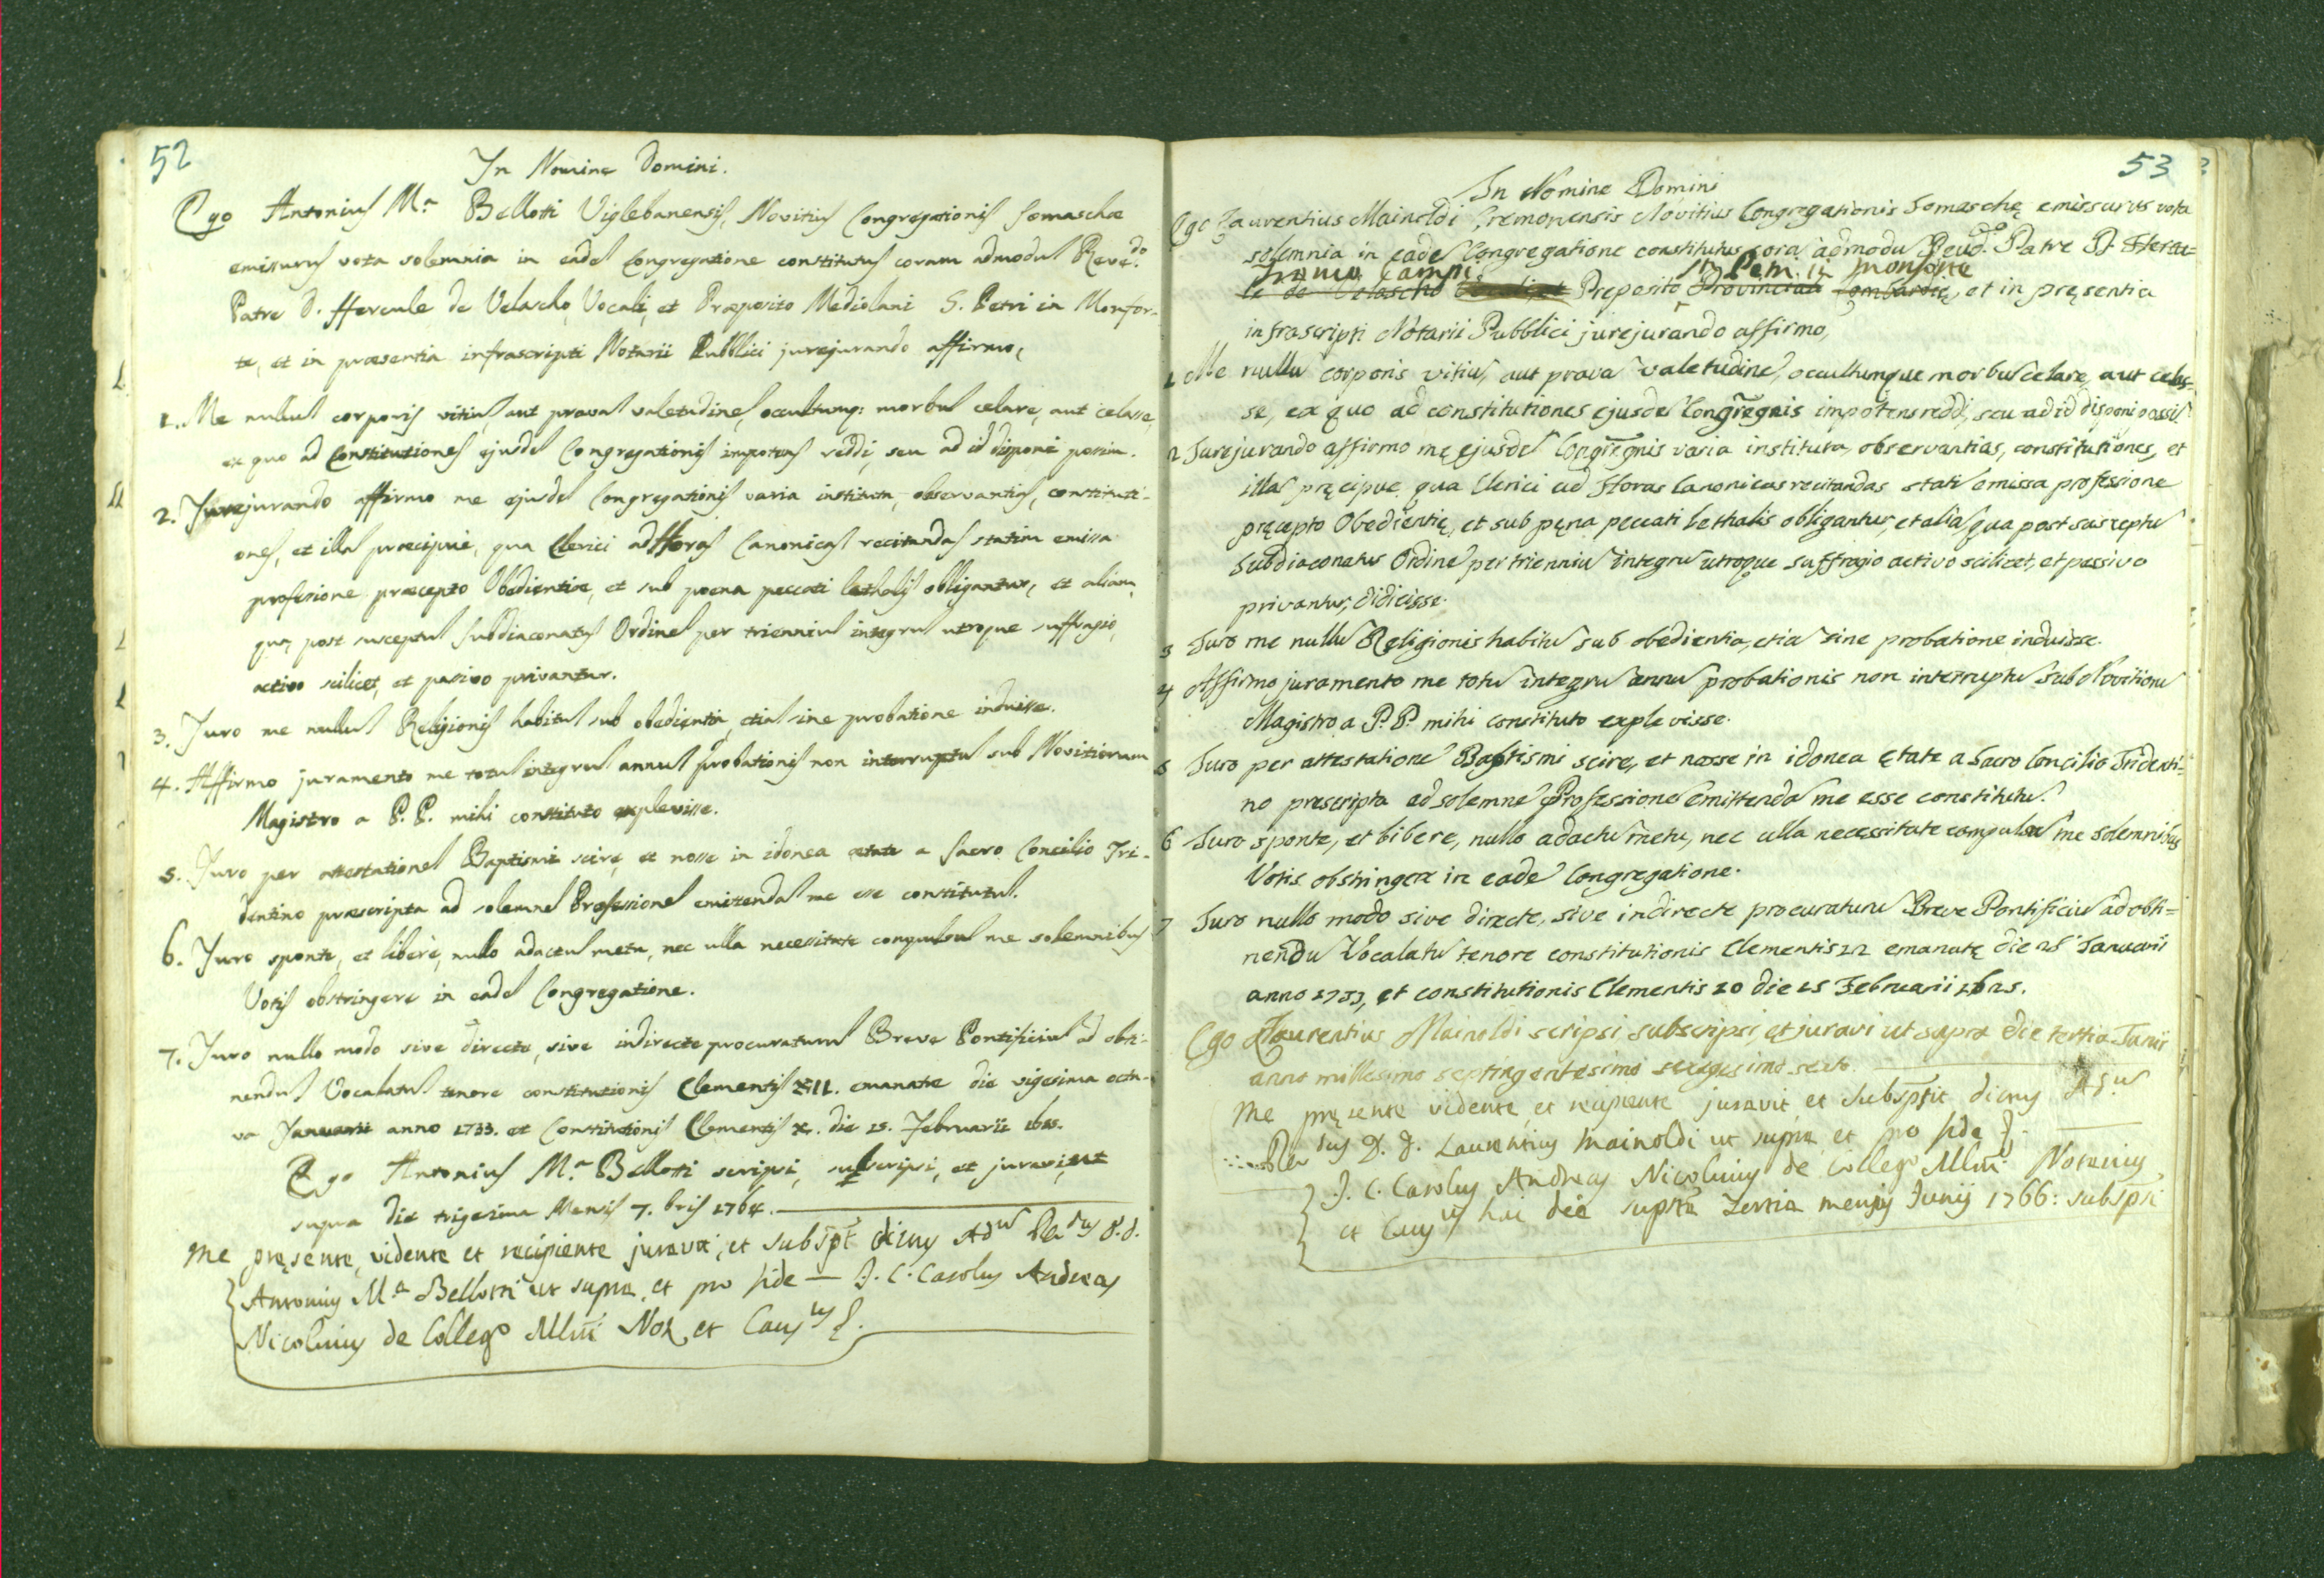 52
In Nomine Domini.
Ego Antonius M.ª Bellotti Viglebanensis, Novitius Congregationis Somaschæ
emissurus vota solemnia in eadē Congregatione constitutus coram admodū Reve.do
Patre D. Hercule de Velascho, Vocali, et Præposito Mediolani S. Petri in Monfor-
te, et in præsentia infrascripti Notarii Pubblici jurejurando affirmo,
1. Me nullū corporis vitiū, aut pravā valetudinē, occultumq; morbū celare, aut celasse,
ex quo ad Constitutiones ejusdē Congregationis impotens reddi, seu ad id disponi possim.
2. Jurejurando affirmo me ejusdē Congregationis varia instituta, observantias, constituti-
ones, et illā præcipuè, qua Clerici ad Horas Canonicas recitandas statim emissa
professione præcepto Obedientiæ, et sub poena peccati lethalis obligantur, et aliam,
qua post susceptū subdiaconatus Ordinē per trienniū integrū utroque suffragio,
activo scilicet, et passivo privantur.
3. Juro me nullū Religionis habitū sub obedientia, etiā sine probatione induisse.
4. Affirmo juramento me totū integrū annū probationis non interruptū sub Novitiorum
Magistro a P. P. mihi constituto explevisse.
5. Juro per attestationē Baptismi scire, et nosse in idonea ætate a Sacro Concilio Tri-
dentino præscripta ad solemnē Professionē emittendā me esse constitutū.
6. Juro sponte, et liberè, nullo adactū metu, nec ulla necessitate compulsū me solemnibus
Votis obstringere in eadē Congregatione.
7. Juro nullo modo sive directe, sive indirecte procuraturū Breve Pontificiū ad obti-
nendū Vocalatū tenore constitutionis Clementis XII. emanatæ die vigesima octa-
va Januarii anno 1733. et Constitutionis Clementis X. die 15. Februarii
Ego Antonius M.ª Bellotti scripsi, subscripsi, et juravi, ut
supra die trigesima Mensis 7.bris 1764.
Me pręsente, vidente et recipiente juravit, et subspt dictus Adū Redus D. D.
Antonius M.ª Bellotti ut supra, et pro fide — J. C. Carolus Andreas
Nicolinus de Collego Mlni Not, et Causus
53
In Nomine Domini
Ego Laurentius Mainoldi Cremonensis Novitius Congregationis Somaschę emissurus vota
solemnia in eadē Congregatione constitutus corā admodū Revd.do Patre D. Hercu=
Campi in Monforte
le de Velascho Preposito Provinciali Lombardię, et in pręsentia
infrascripti Notarii Pubblici jurejurando affirmo,
1 Me nullū corporis vitiū, aut pravā valetudinē, occultumque morbū celare, aut celas-
se, ex quo ad constitutiones ejusdē Congregnis impotens reddi, seu ad id disponi possī.
2 Jurejurando affirmo me ejusdē Congregnis varia instituta, observantias, constitutiones, et
illā pręcipue, qua Clerici ad Horas Canonicas recitandas statī emissa professione
pręcepto Obedientię, et sub pęna peccati lethalis obligantur, et aliā, qua post susceptū
subdiaconatus Ordinē per trienniū integrū utroque suffragio activo scilicet, et passivo
privantur, didicisse.
3 Juro me nullū Religionis habitū sub obedientia, etiā sine probatione induisse.
4 Affirmo juramento me totū integrū annū probationis non interruptū sub Novitiorū
Magistro a P. P. mihi constituto explevisse.
5 Juro per attestationē Baptismi scire, et nosse in idonea ętate a Sacro Concilio Tridenti=
no prescripta ad solemnē Professionē emittendā me esse constitutū.
6 Juro sponte, et libere, nullo adactū metu, nec ulla necessitate compulsū me solemnibus
Votis obstringere in eadē Congregatione.
7 Juro nullo modo sive directe, sive indirecte procuraturū Breve Pontificiū ad obti=
nendū Vocalatū tenore constitutionis Clementis 12 emanatę die 28 Januarii
anno 1733, et constitutionis Clementis 10 die 15 Februarii
Ego Laurentius Mainoldi scripsi, subscripsi, et juravi ut supra die tertia Junii
anno millesimo septingentesimo sexagesimo sexto.
Me pręsente vidente, et recipiente juravit, et subsprit dictus Adū
Redus D. D. Laurentius Mainoldi ut supra, et pro fide
J. C. Carolus Andreas Nicolinus de Collego Mlni Notarius
et Causus hac die supra Tertia mensis Junij 1766: subspsi